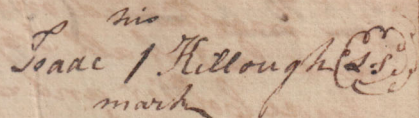 his
Isaac 1 Killough L.S.
mark